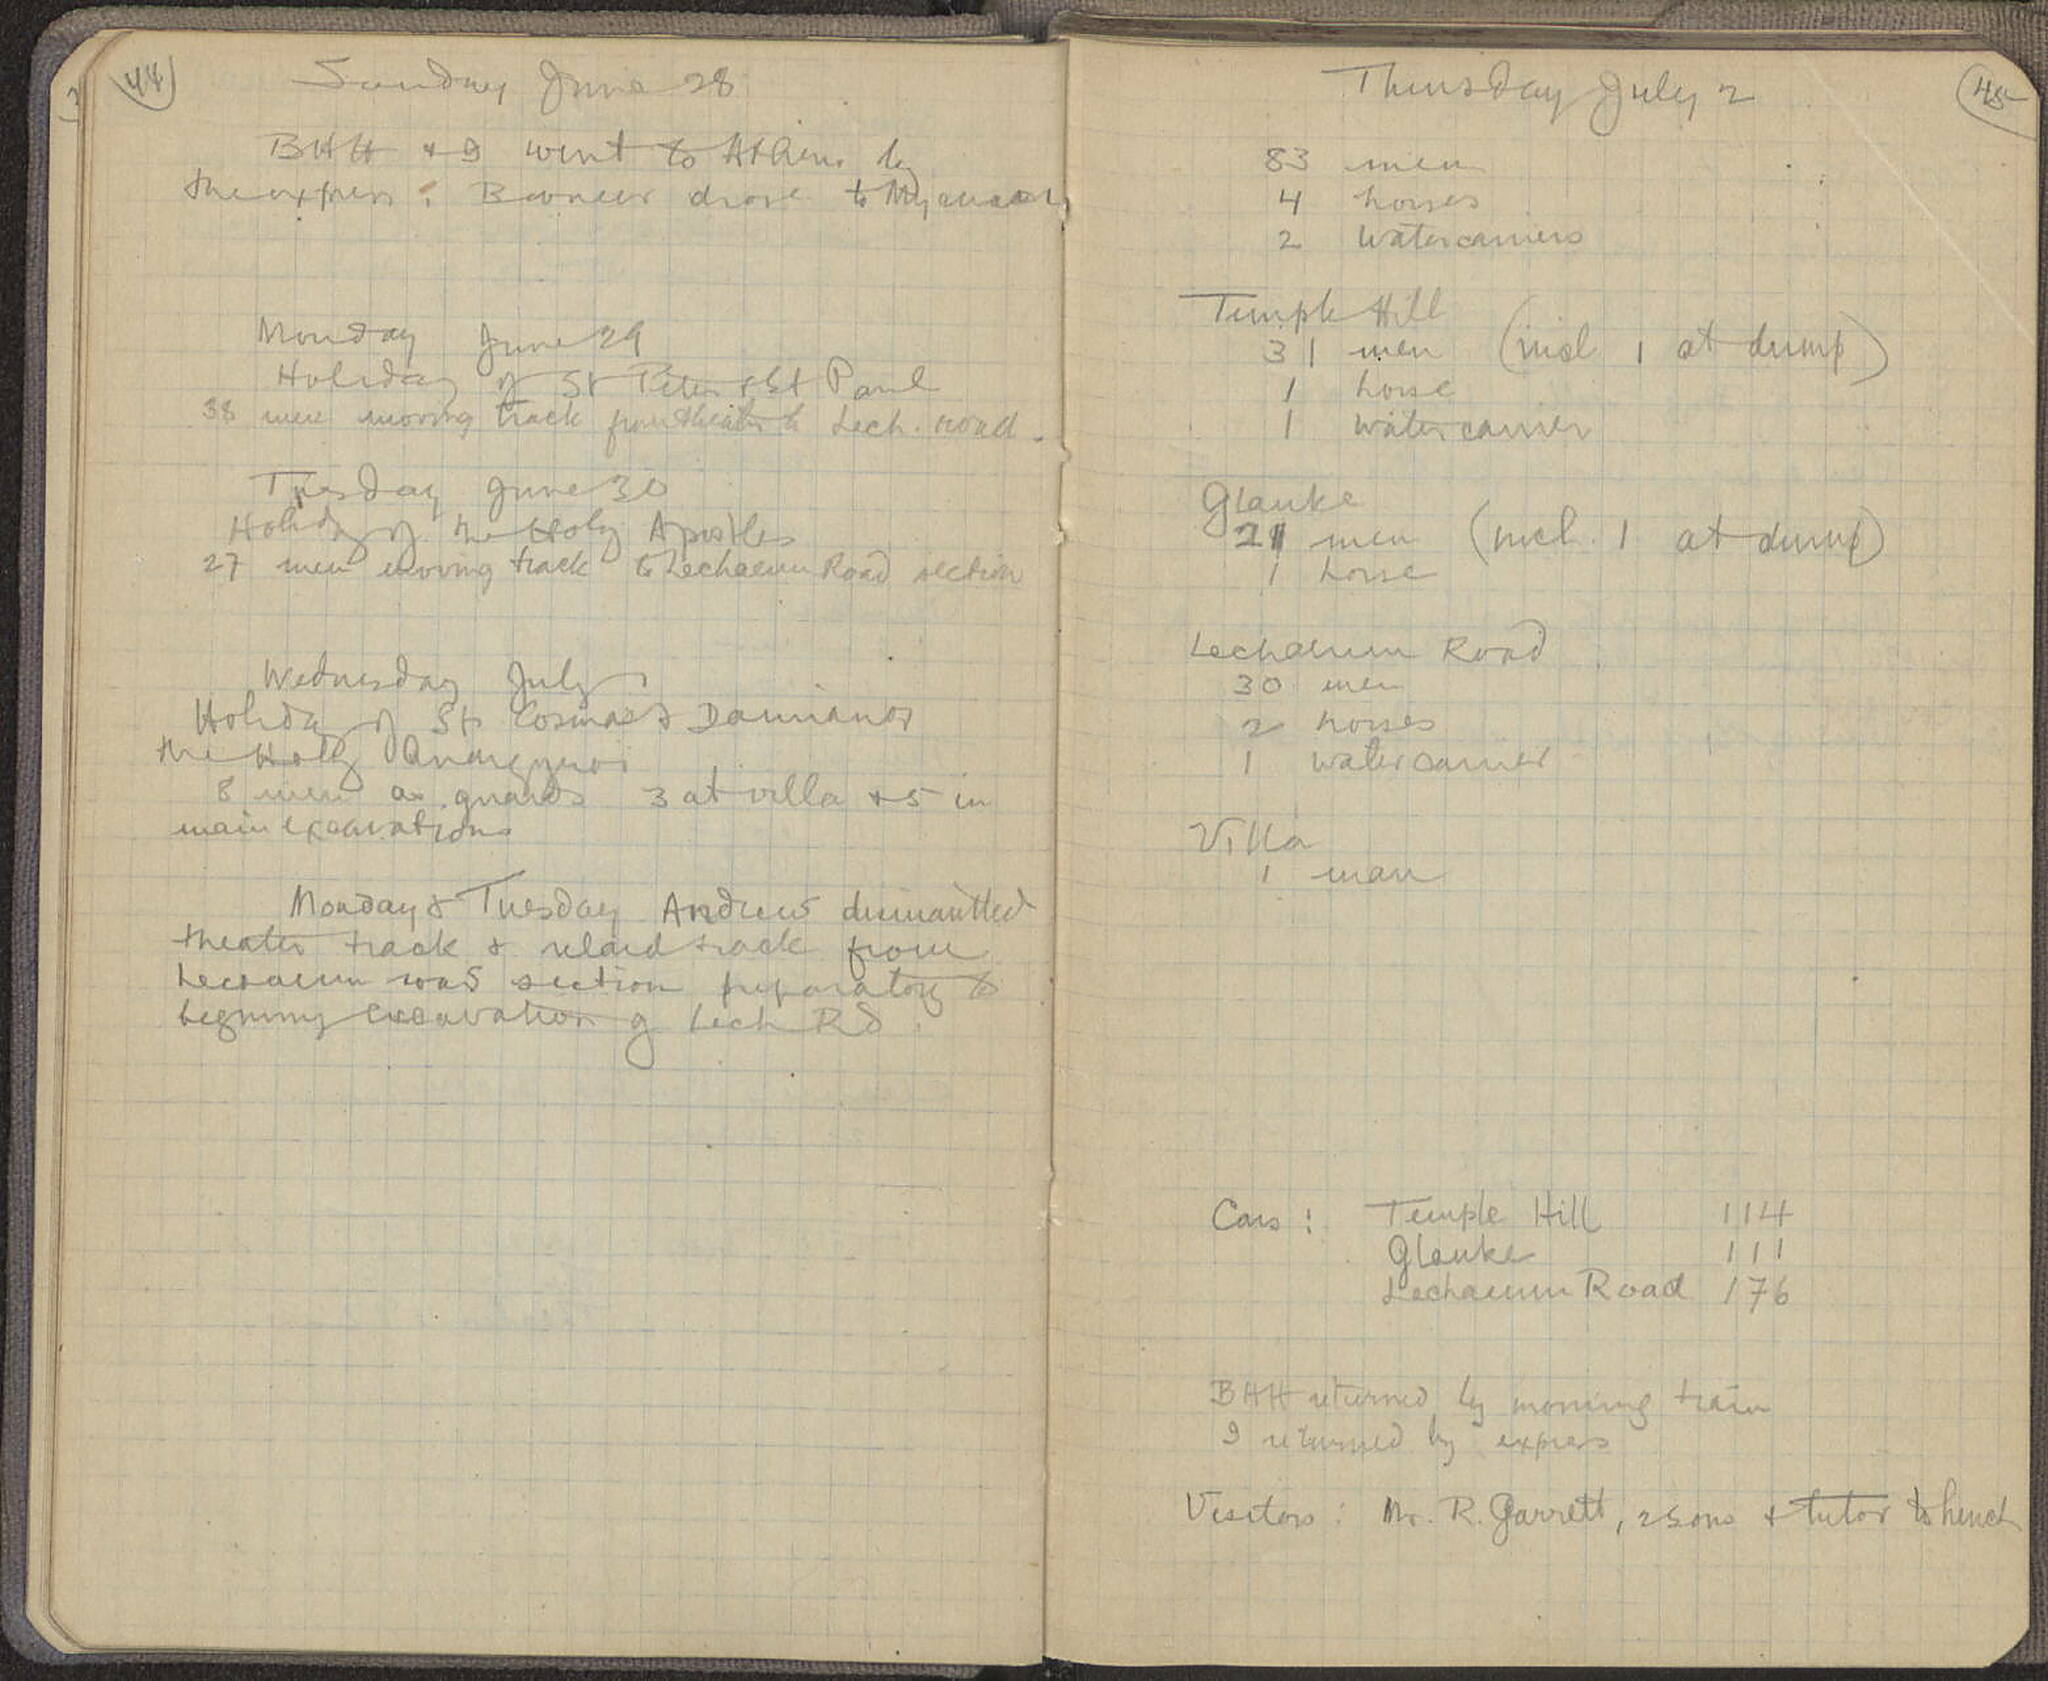 44
Sunday June 28
BHH & I went to Athens by
the express: Bonner drove to Mycenae
Monday June 29
Holiday of St Peter & St Paul
38 men moving track from theater to Lech. road.
Tuesday June 30
Holiday of the Holy Apostles
27 men moving track to Lechaeum Road section
Wednesday July 1
Holiday of Sts Cosmas & Damianos
the Holy Anargyroi
8 men as guards 3 at villa & 5 in
main excavations
Monday & Tuesday Andrews dismantled
theater track & relaid track from
Lechaeum road section preparatory to
beginning excavation of Lech Rd.
45
Thursday July 2
83 men
4 horses
2 watercarriers
Temple Hill
31 men (incl 1 at dump)
1 horse
1 watercarrier
Glauke
21 men (incl. 1 at dump)
1 horse
Lechaeum Road
30 men
2 horses
1 watercarrier
Villa
1 man
Cars: Temple Hill 114
Glauke 111
Lechaeum Road 176
BHH returned by morning train
I returned by express
Visitors: Mr. R. Garrett, 2 sons & tutor to lunch